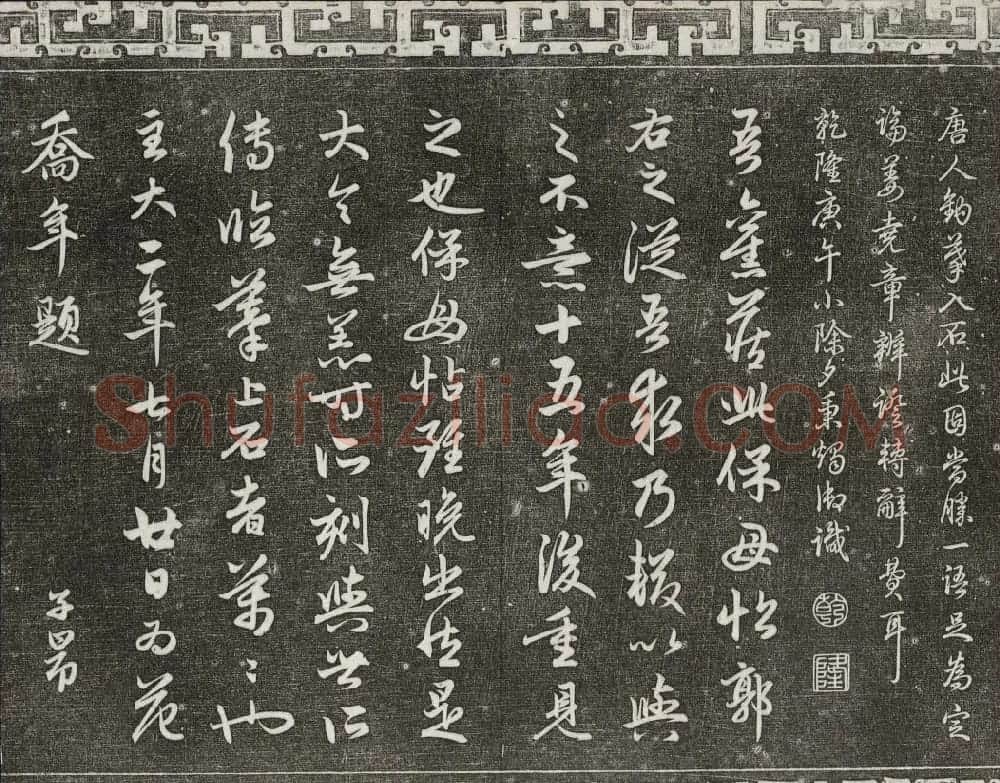 唐人鈎摹入石此固當勝一語足為定
論姜堯章辨證轉辭費耳
乾隆庚午小除夕秉燭御識
乾
隆
吾舊藏此保母帖郭
右之從吾求乃輟以與
之不意十五年後重見
之也保母帖雖晚出然是
大令無恙時所刻與世所
傳臨摹上石者萬〻也
至大二年七月廿日為范
喬年題
子昂
Shufaziliao.COM